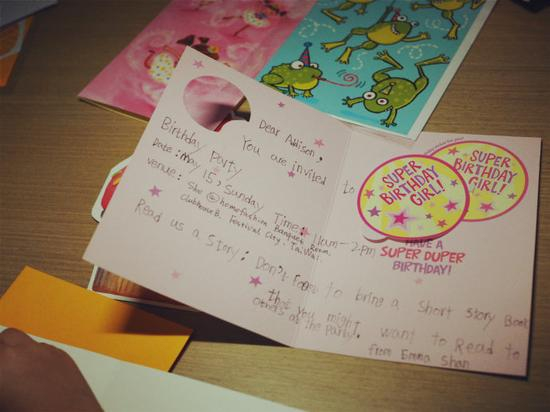 Dear Addison,
You are invited to
Birthday Party
Date: May 15, Sunday Time: 11am - 2pm
Venue: She @ homefashion Banquet Room,
Clubhouse B. Festival City, Tai Wai.
Read us a Story: Don't Forget to bring a short story Book
that you might want to Read to
others at the Party.
from Emma Shan
SUPER
BIRTHDAY
GIRL!
SUPER
BIRTHDAY
GIRL!
HAVE A
SUPER DUPER
BIRTHDAY!